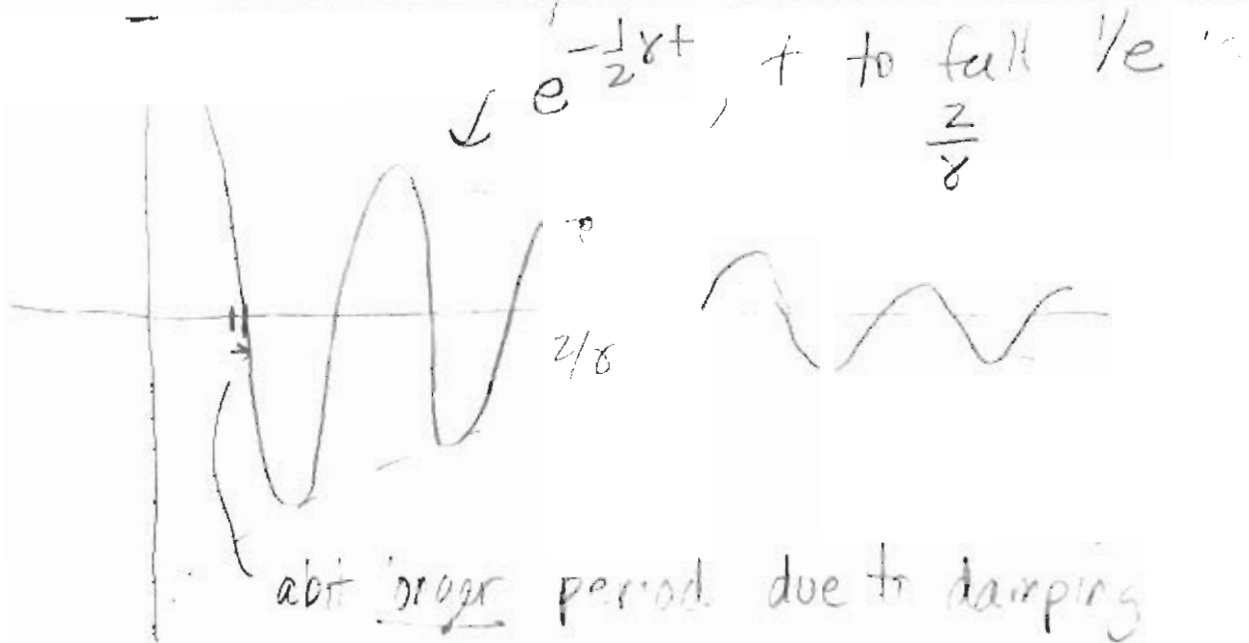 e^{-\frac{1}{2}γt}, t to fall 1/e
\frac{2}{γ}
2/γ
a bit longer period due to damping